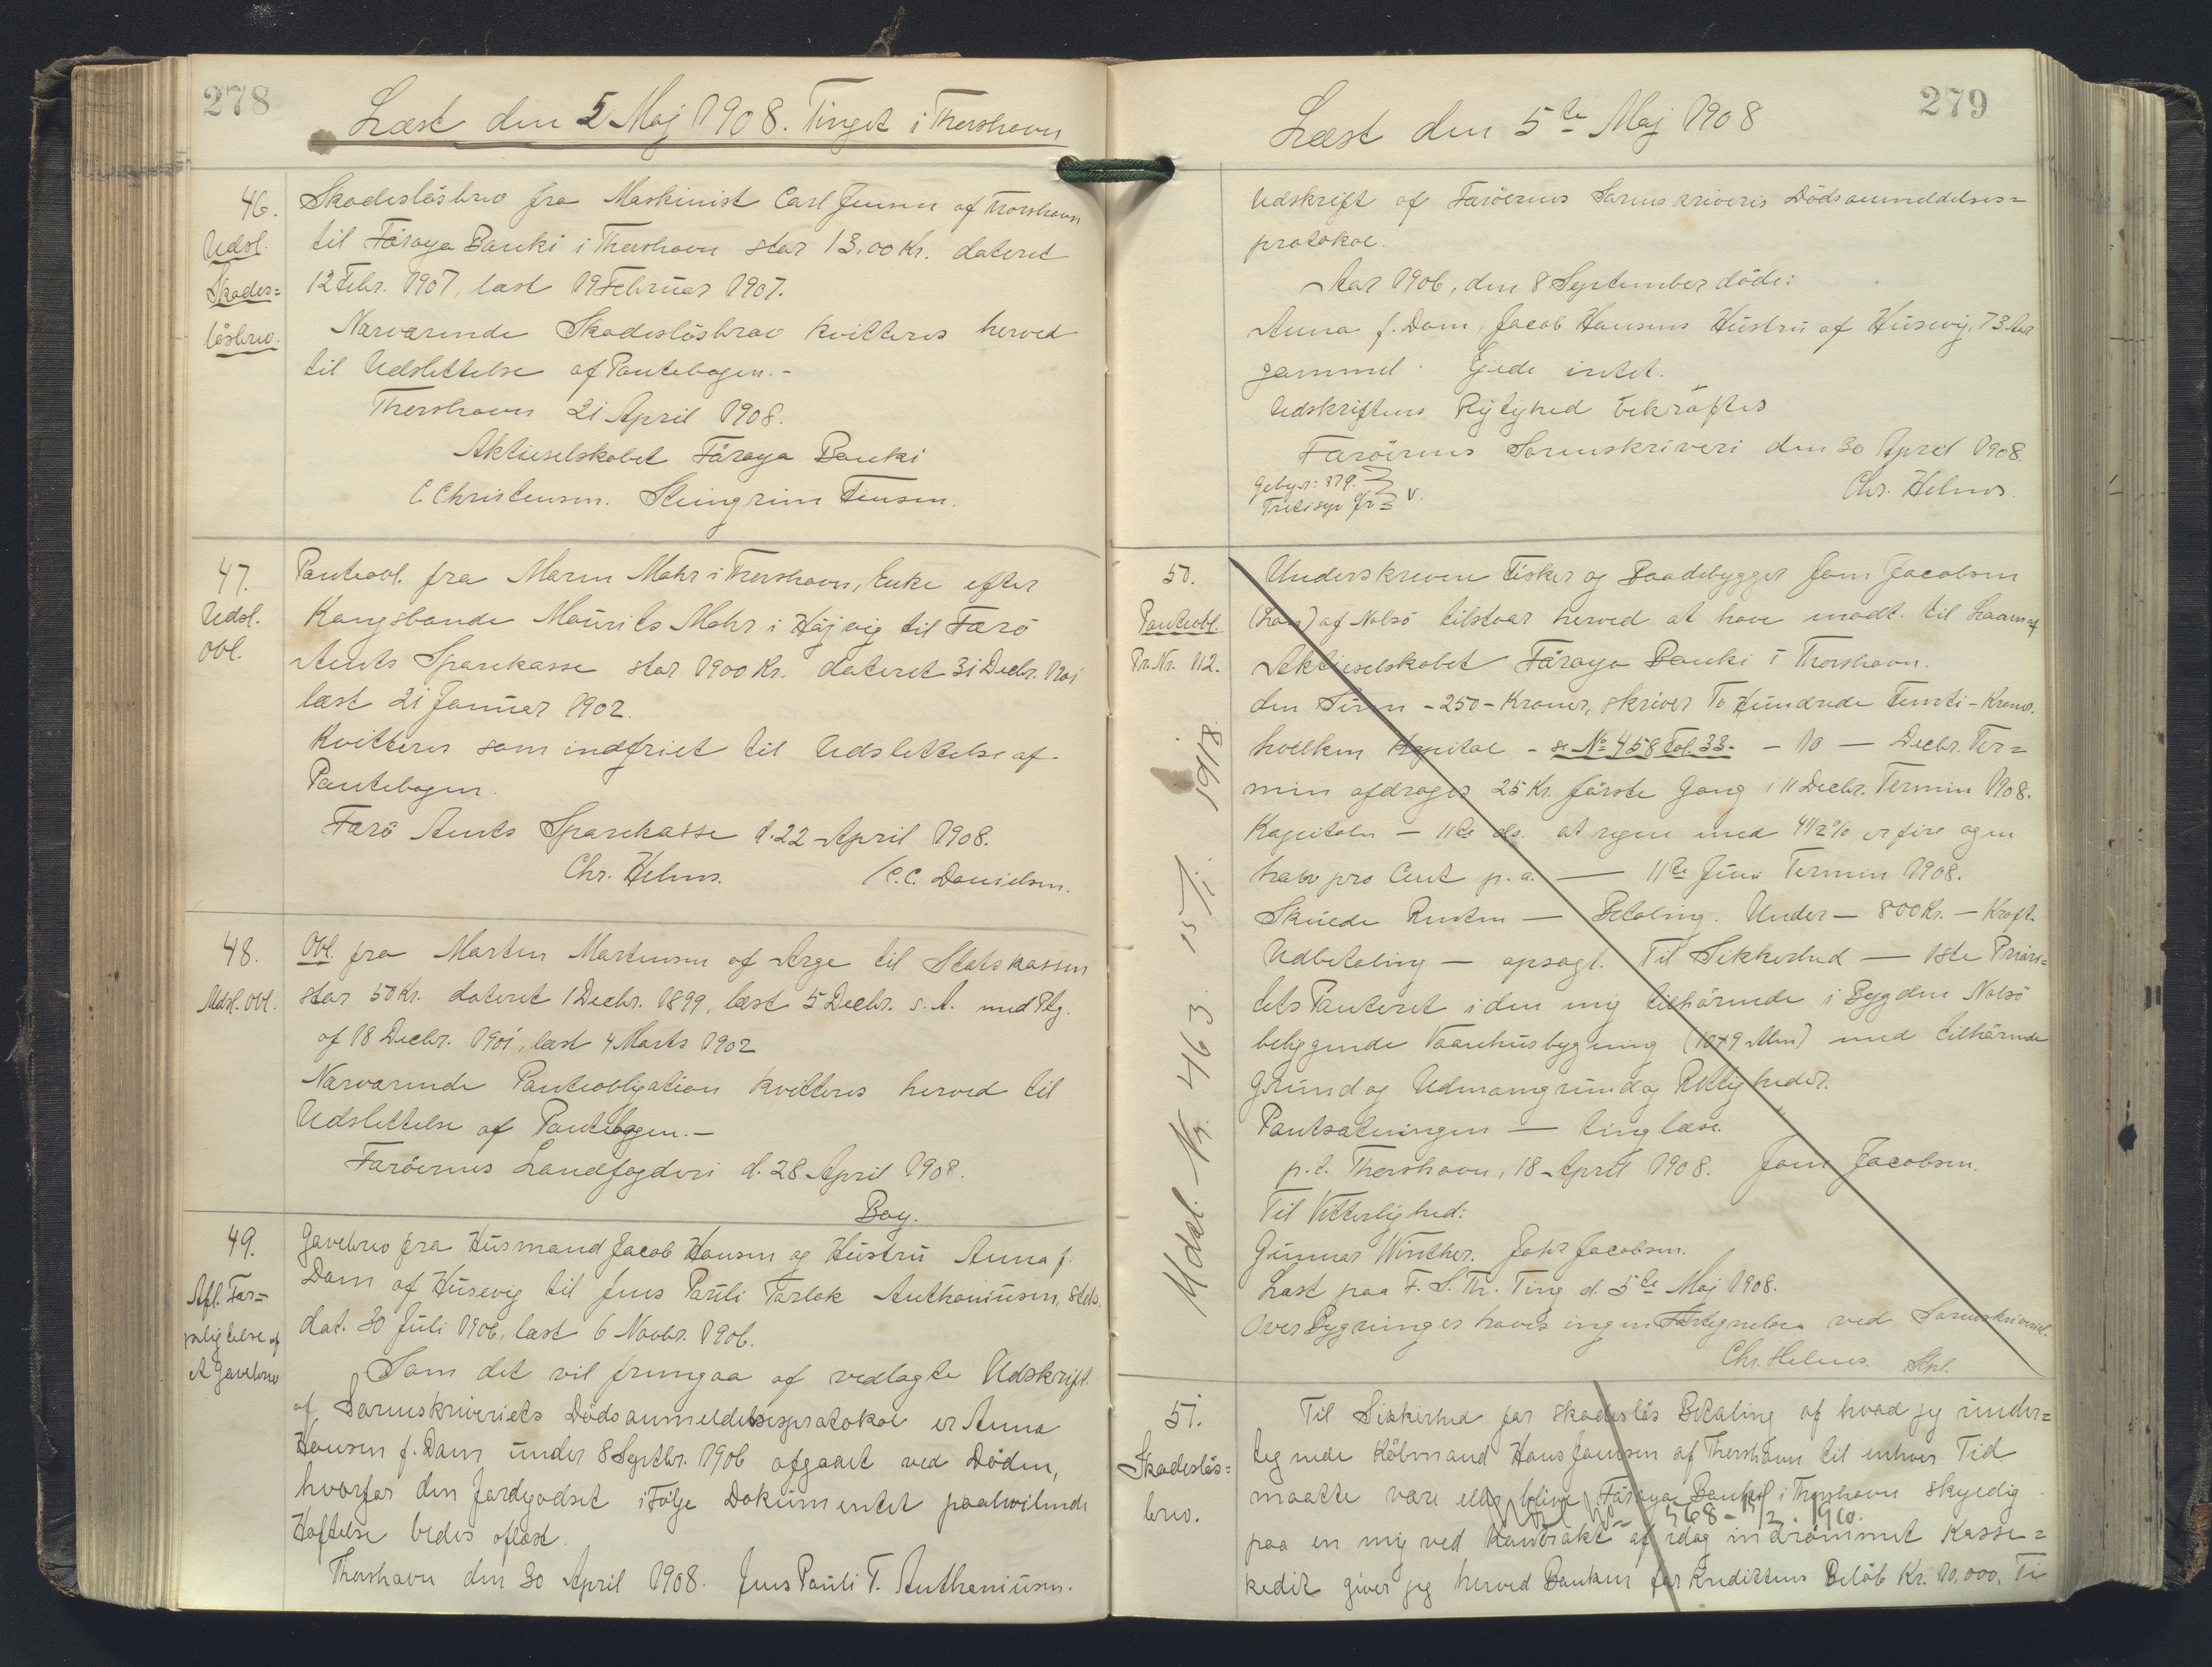 278
Læst den 5 Maj 1908. Tinget i Thorshavn
46.
Udsl.
Skades=
løsbrev.
Skadesløsbrev fra Maskinist Carl Jensen af Thorshavn
til Føroya Banki i Thorshavn stor 13,00 Kr. dateret
12 Febr. 1907, læst 19 Februar 1907.
Nærværende Skadesløsbrev kvitteres herved
til Udslettelse af Pantebogen.-
Thorshavn 21 April 1908.
Aktieselskabet Føroya Banki
C. Christensen. Steingrim Finsen.
47.
Udsl.
Obl.
Panteobl. fra Maren Mohr i Thorshavn, Enke efter
Kongsbonde Maurits Mohr i Højvig til Færø
Amts Sparekasse stor 1900 Kr. dateret 31 Decbr. 1901
læst 21 Januar 1902.
Kvitteres som indfriet til Udslettelse af
Pantebogen.
Færø Amts Sparekasse d. 22 April 1908.
Chr. Helms. / C.C. Danielsen.
48.
Udsl. Obl.
Obl. fra Morten Mortensen af Arge til Statskassen
stor 50 Kr. dateret 1 Decbr. 1899, læst 5 Decbr. s. A. med Ptg.
af 18 Decbr. 1901, læst 4 Marts 1902
Nærværende Panteobligation kvitteres herved til
Udslettelse af Pantebogen.-
Færøernes Landfogderi d. 28 April 1908.
Bay.
49.
Afl. For=
pligtelse af
et Gavebrev
Gavebrev fra Husmand Jacob Hansen og Hustru Anna f.
Dam af Husevig til Jens Pauli Tarlak Anthoniusen, stds.
dat. 30 Juli 1906, læst 6 Novbr. 1906.
Som det vil fremgaa af vedlagte Udskrift
af Sorenskriveriets Dødsanmeldelsesprotokol er Anna
Hansen f. Dam under 8 Septbr. 1906 afgaaet ved Døden,
hvorfor den Jordgodset ifølge Dokumentet paahvilende
Hæftelse bedes aflæst.
Thorshavn den 30 April 1908. Jens Pauli T. Anthoniusen.
279
Læst den 5te Maj 1908
Udskrift af Færøernes Sorenskriveris Dødsanmeldelses=
protokol.
Aar 1906, den 8 September døde:
Anna f. Dam, Jacob Hansens Hustru af Husevig, 73 Aar
gammel. Ejede intet.
Udskriftens Rigtighed bekræftes
Færøernes Sorenskriveri den 30 April 1908.
Chr. Helms.
Gebyr: 37 Ø.
Tretisyv Ør
50.
Panteobl.
Pr. Nr. 112.
Udsl. Nr. 463 15/1. 1918.
Underskreven Fisker og Baadebygger Joen Jacobsen
af Nolsø tilstaar herved at have modt. til Laans af
Aktieselskabet Føroya Banki i Thorshavn.
den Sum - 250 - Kroner, skriver To Hundrede Femti - Kroner.
hvilken Kapital - se No 458 Fol. 33 - 10 - Decbr. Ter=
min afdrages 25 Kr. første Gang i 11 Decbr. Termin 1908.
Kapitalen - 11te ds. at regne med 4 1/2 %, er fire og en
halv pro Cent p. a. - 11te Juni Termin 1908.
Skulde Renten - Betaling. Under - 800 Kr. - Kraft.
Udbetaling - opsagt. Til Sikkerhed - 1ste Priori=
tets Panteret i den mig tilhørende i Bygden Nolsø
beliggende Vaanhusbygning (10x9 Alen) med tilhørende
Grund og Udmarngrund og Rettigheder.
Pantsætningen - tinglæse.
p. t. Thorshavn, 18 April 1908. Joen Jacobsen.
Til Vitterlighed:
Gunnar Winther. Johs Jacobsen.
Læst paa F. S. Th. Ting d. 5te Maj 1908.
Over Bygninger haves ingen Fortegnelse ved Sorenskriveriet.
Chr. Helms.
51.
Skadesløs=
brev.
Til Sikkerhed for skadesløs Betaling af hvad jeg under=
tegnede Købmand Hans Jansen af Thorshavn til enhver Tid
maatte være eller blive Føroya Banki i Thorshavn skyldig
568 - 1910.
paa en mig ved Kontrakt af idag indrømmet Kasse=
kedit giver jeg herved Banken for Kredittens Beløb Kr. 10,000, Ti